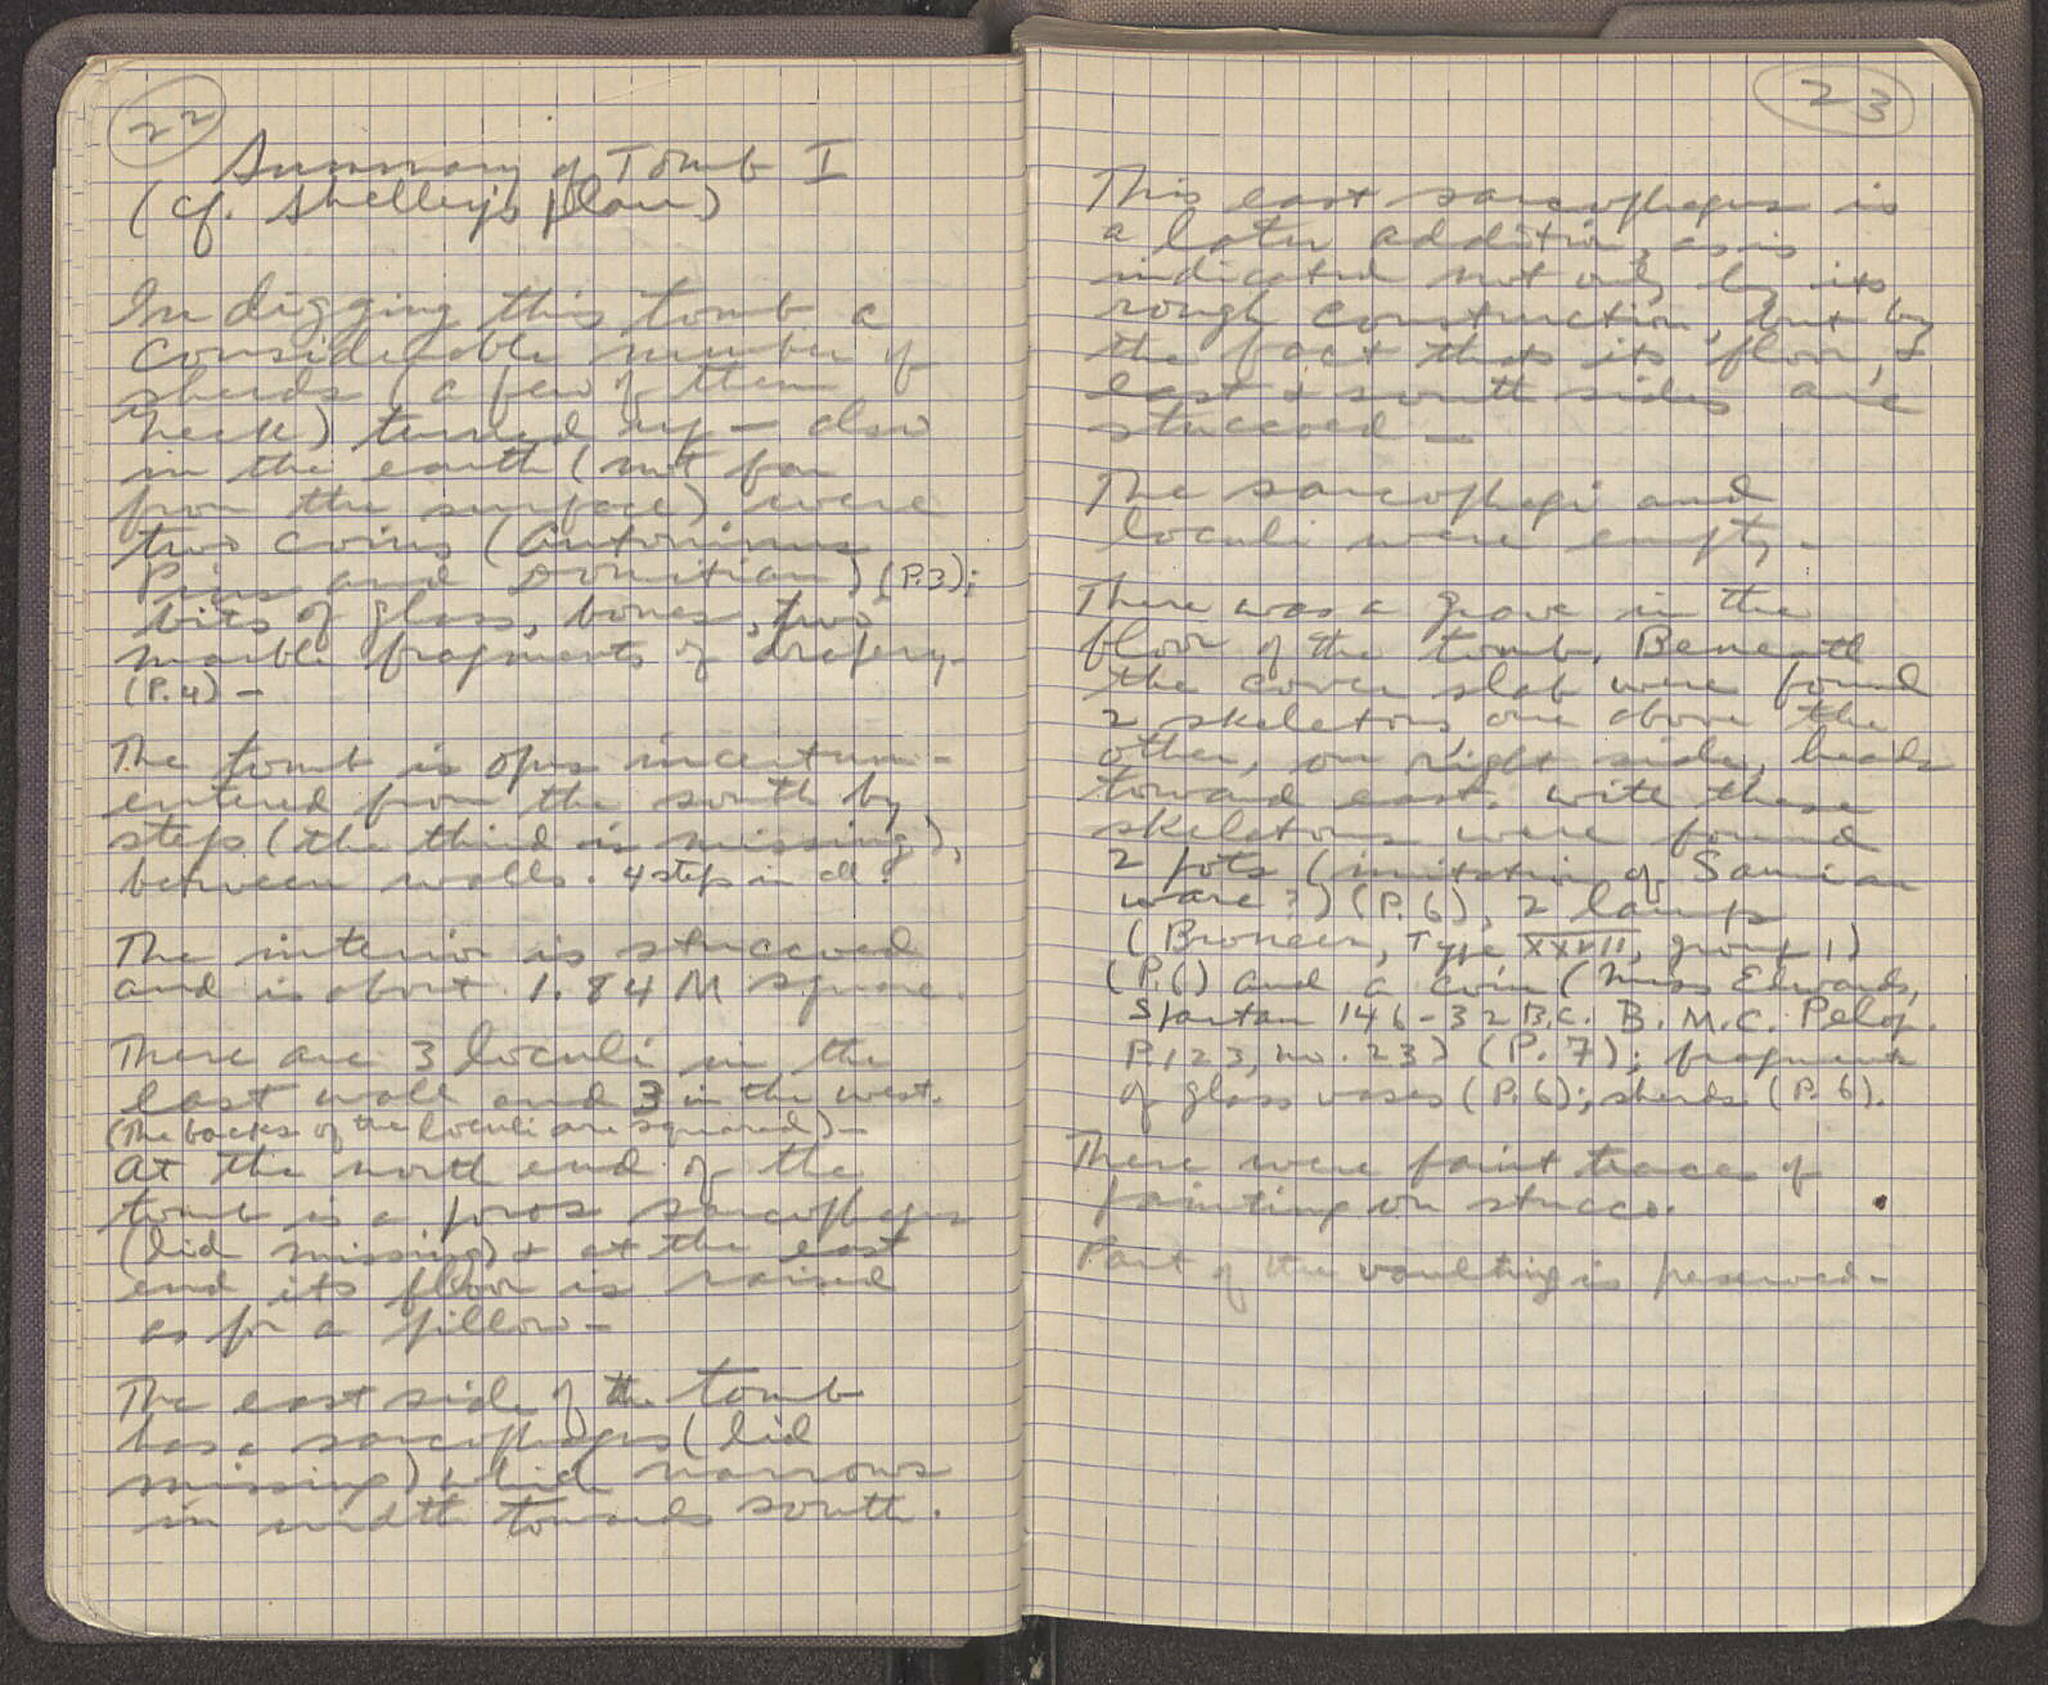 22
Summary of Tomb I
(cf. Shelley's plan)
In digging this tomb a
considerable number of
sherds (a few of them
neck) turned up - also
in the earth (not far
from the surface) were
two coins (Antoninus
Pius and Domitian) (P.3);
bits of glass, bones, two
marble fragments of drapery
(P.4) -
The tomb is opus incertum -
entered from the south by
steps (the third is missing),
between walls. 4 steps in all.
The interior is stuccoed
and is about 1.84 M square.
There are 3 loculi in the
east wall and 3 in the west.
(The backs of the loculi are squared) -
At the north end of the
tomb is a poros sarcophagus
(lid missing) & at the east
end its floor is raised
as for a pillow -
The east side of the tomb
has a sarcophagus (lid
missing) which narrows
in width towards south.
23
This east sarcophagus is
a later addition, as is
indicated not only by its
rough construction, but by
the fact that its floor, &
east & south sides are
stuccoed -
The sarcophagi and
loculi were empty -
There was a grave in the
floor of the tomb. Beneath
the cover slab were found
2 skeletons, one above the
other, on right side, heads
toward east. With these
skeletons were found
2 pots (imitation of Samian
ware?) (P.6), 2 lamps
(Broneer, Type XXVII, group 1)
(P.6) and a coin (Miss Edwards,
Spartan 146-32 B.C. B.M.C. Pelop.
P.123, no. 23) (P.7); fragments
of glass vases (P.6); sherds (P.6).
There were faint traces of
painting on stucco.
Part of the vaulting is preserved -